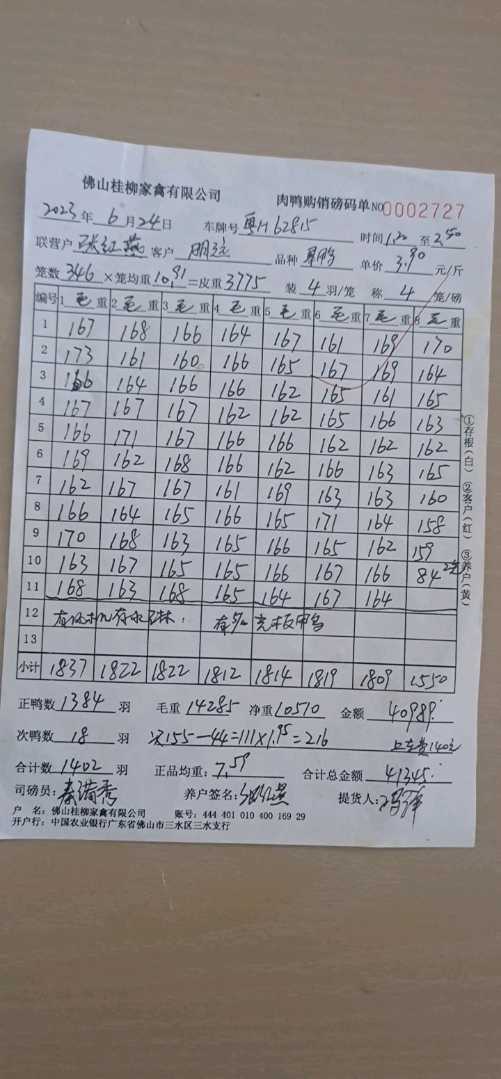 佛山桂柳家禽有限公司 肉鸭购销磅码单 NO 0002727
2023年 6月24日 车牌号 粤H62815 时间 1.20 至 2.50
联营户 张红燕 客户 明运 品种 单价 3.90 元/斤
笼数 346 ×笼均重 10.91 =皮重 3775 装 4 羽/笼 称 4 笼/磅
编号 1 毛重 2 毛重 3 毛重 4 毛重 5 毛重 6 毛重 7 毛重 8 毛重
1 167 168 166 164 167 161 169 170
2 173 161 160 166 165 167 169 164
3 166 164 166 166 162 165 161 165
4 167 167 167 162 162 165 166 163
5 166 171 167 166 166 162 162 162
6 169 162 168 166 162 166 163 165
7 162 167 167 161 169 163 163 160
8 166 164 165 166 165 171 164 158
9 170 168 163 165 166 165 162 159
10 163 167 165 165 166 167 166 84 2笼
11 168 163 168 165 164 167 164
12
13
小计 1837 1822 1822 1812 1814 1819 1809 1550
正鸭数 1384 羽 毛重 14285 净重 10510 金额 40989.
次鸭数 18 羽 次155-44=111×1.95=216 上车费140元
合计数 1402 羽 正品均重: 7.59 合计总金额 41345.
司磅员: 秦满秀 养户签名: 提货人:
户 名: 佛山桂柳家禽有限公司 账号: 444 401 010 400 169 29
开户行: 中国农业银行广东省佛山市三水区三水支行
①存根(白) ②客户(红) ③养户(黄)